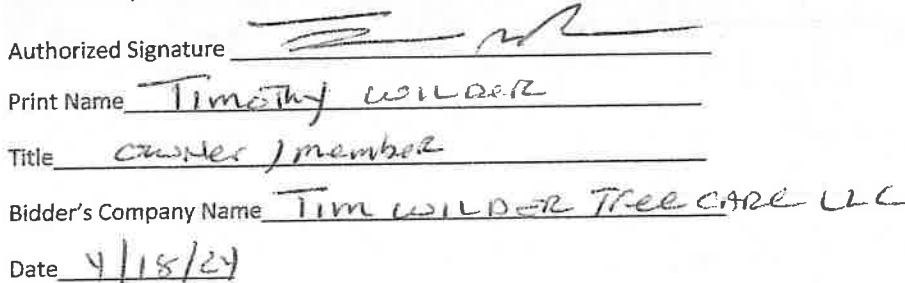 Authorized Signature
Print Name Timothy WILDER
Title owner / member
Bidder's Company Name Tim WILDER Tree CARE LLC
Date 4/18/24